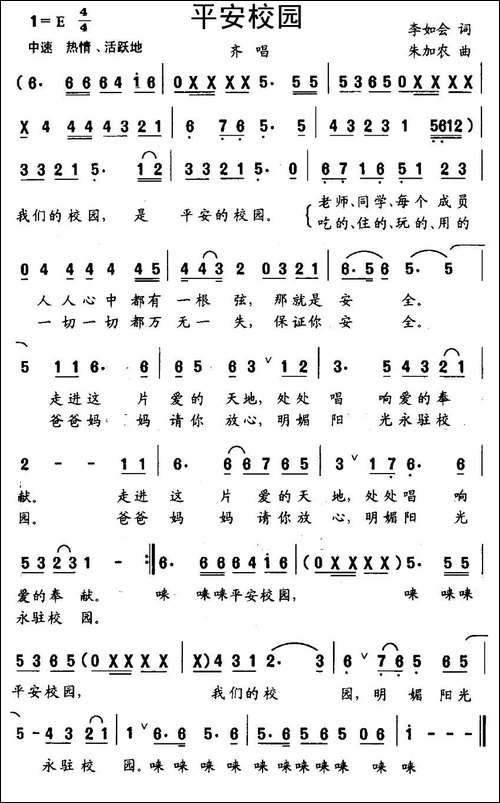 平安校园
1=E 4/4
中速 热情、活跃地
齐唱
李如会 词
朱加农 曲
(6· 6 6 6 4 i 6 | 0 X X X X X 5· 5 5 | 5 3 6 5 3 5 | 0 X X X X X |
X 4 4 4 4 3 2 1 | 6 7 6 5 5· 5 | 4 3 2 3 1 5612) |
3 3 2 1 5· 1 2 | 3 3 2 1 5· 0 | 6 7 1 6 5 1 2 3 |
我们的校园，是 平安的校园。
老师、同学、每个 成员
吃的、住的、玩的、用的
0 4 4 4 4 4 5 | 4 4 3 2 0 3 2 1 | 6· 5 6 5· 5 |
人人心中都有一根弦，那就是安 全。
一切一切都万无一失，保证你安 全。
5 1 1 6· 6 | 6 5 6 3 ∨ 1 2 | 3· 5 4 3 2 1 |
走进这 片爱的天地，处处唱 响爱的奉
爸爸妈 妈请你放心，明媚阳 光永驻校
2 - - 1 1 | 6· 6 6 7 6 5 | 3 ∨ 1 7 6· 6 |
献。 走进这 片爱的天地，处处唱 响
园。 爸爸妈 妈请你放心，明媚阳 光
5 3 2 3 1 - :‖ 6· 6 6 6 4 i 6 | (0 X X X X X) 5· 5 5 |
爱的奉献。 咪 咪咪平安校园， 咪 咪咪
永驻校园。
5 3 6 5 (0 X X X X X | X X) 4 3 1 2· 3 | 6 ∨ 7 6 5 5 |
平安校园， 我们的校 园，明媚阳光
5 - 4 3 2 1 | 1 ∨ 6· 6 5· 5 | 6 5 6 5 0 6 | i - - - ‖
永驻校 园。咪咪 咪 咪 咪咪咪咪 咪 咪